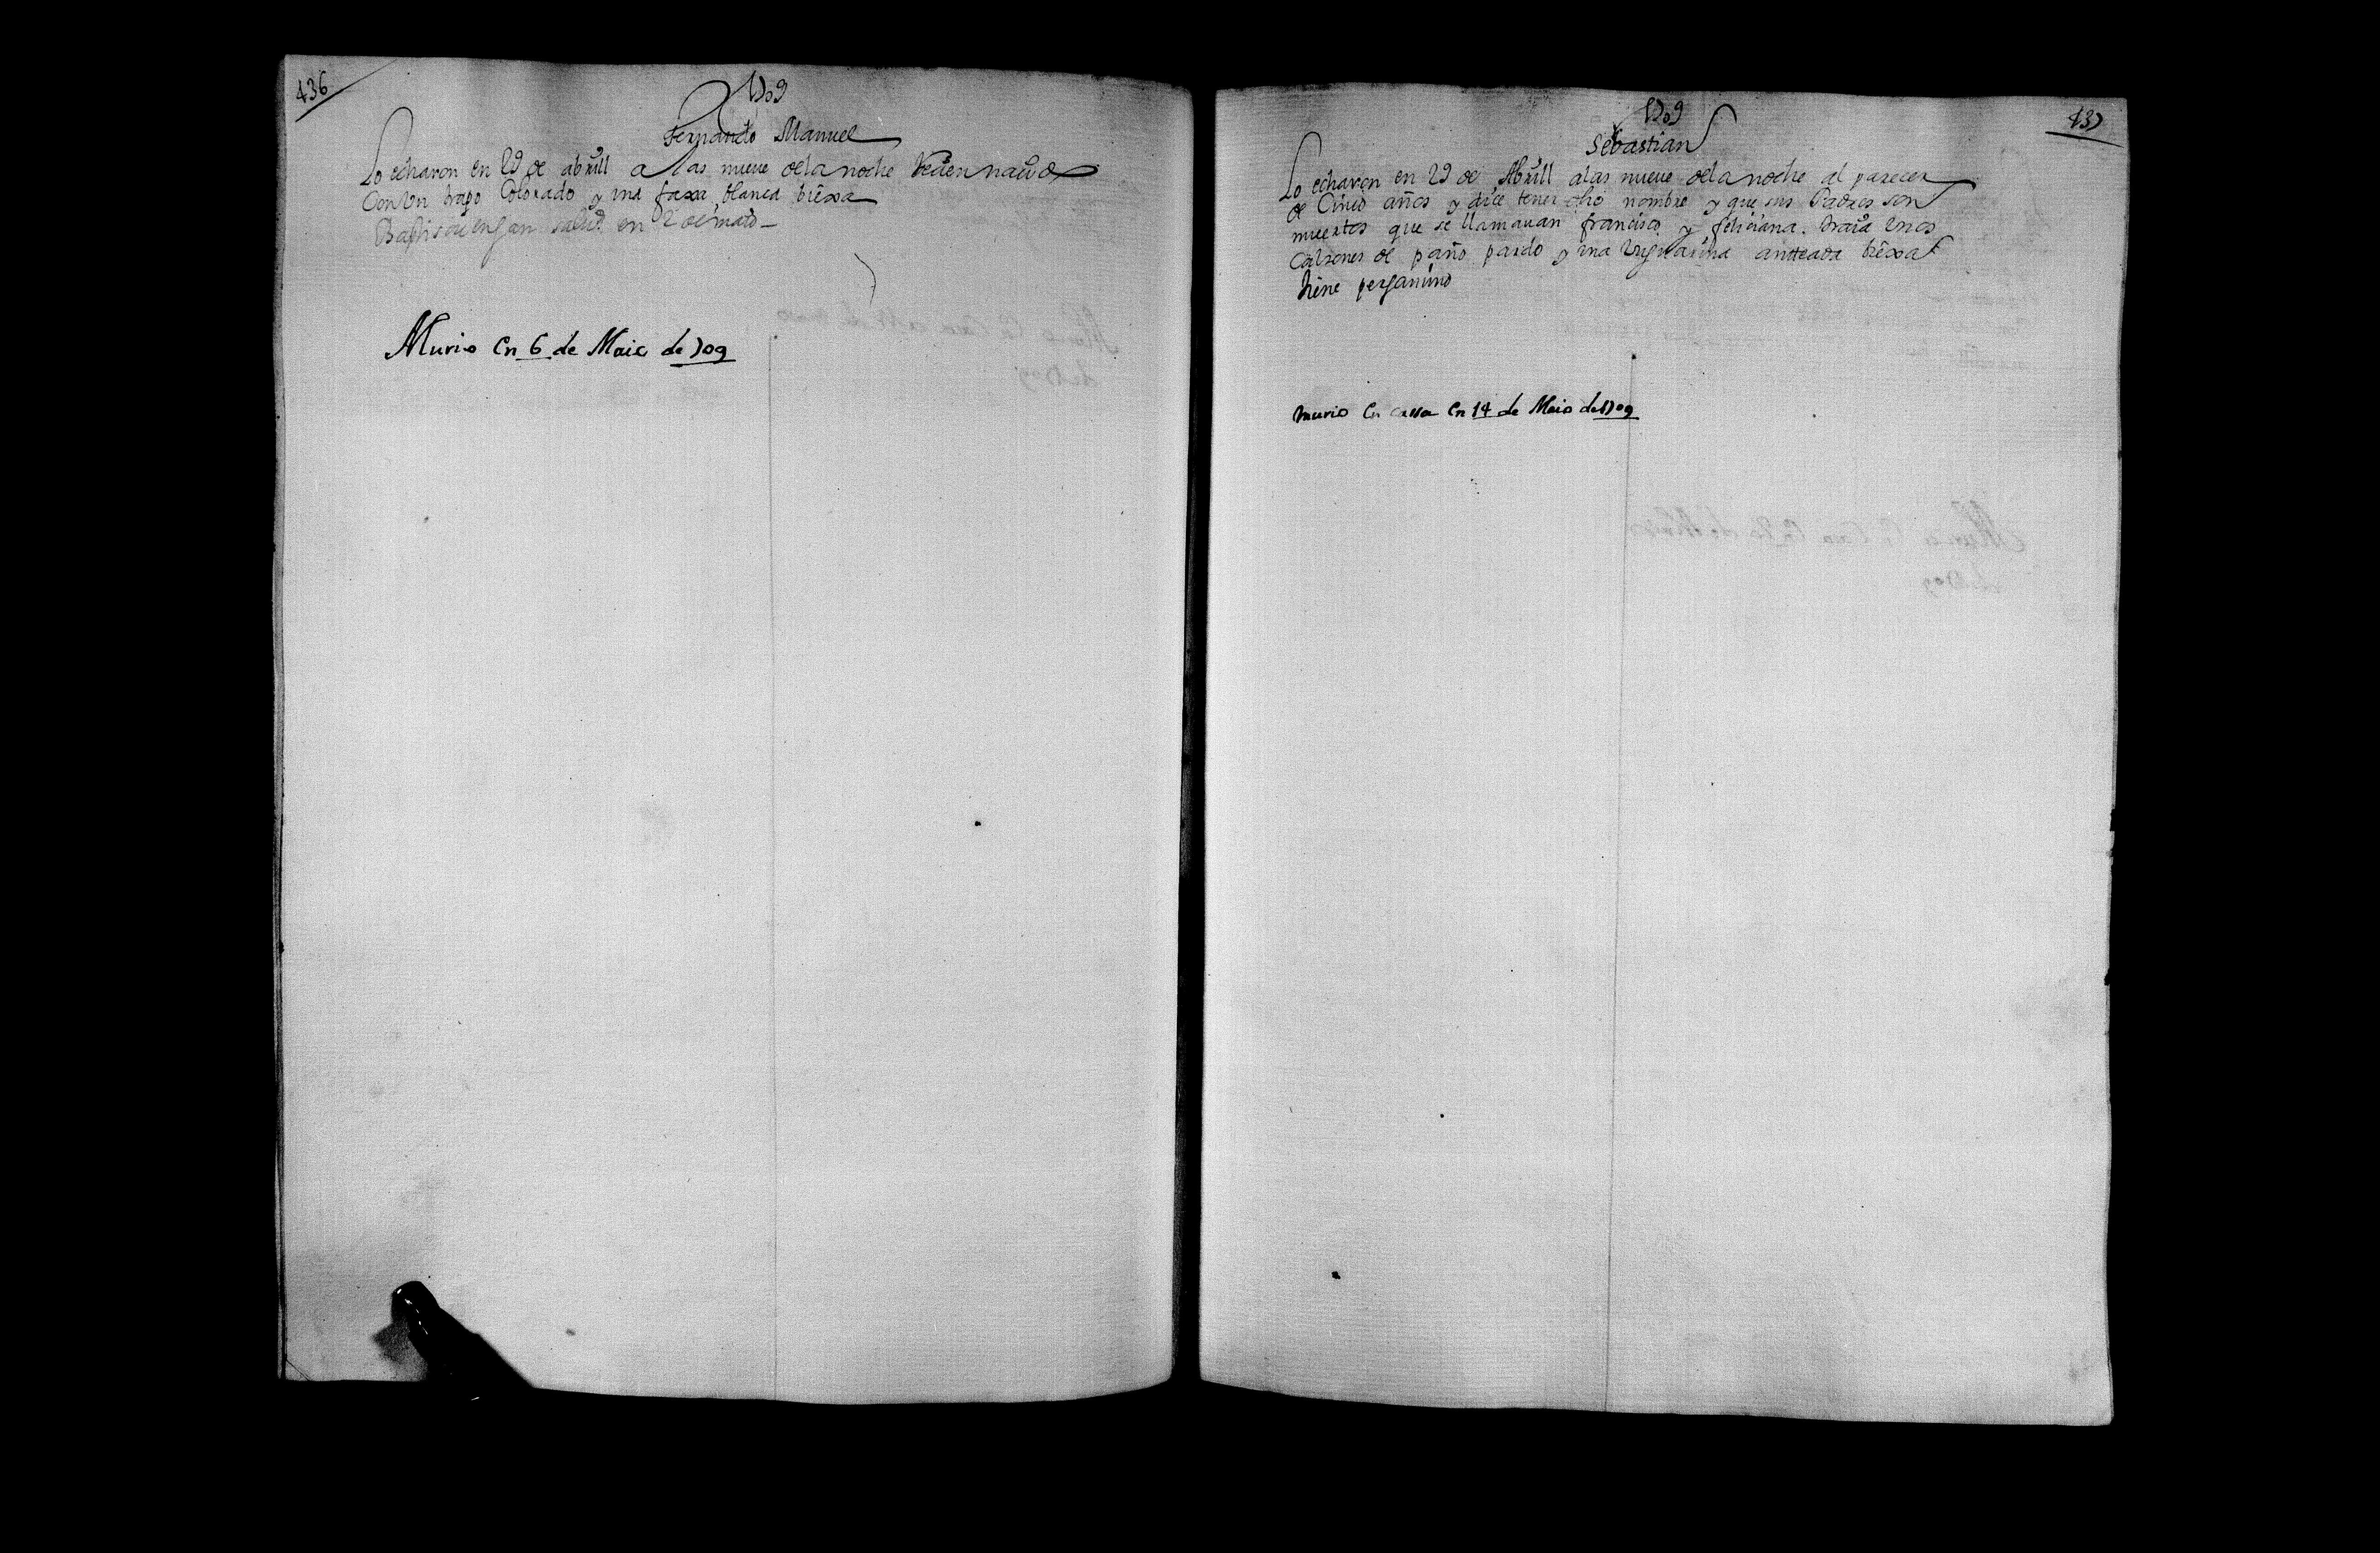 436
1709
Fernando Manuel
Lo echaron en 29 de abrill a las nueve de la noche Recien nacido
Con Un trapo Colorado y una faxa blanca biexa
Baptisose en san salu.or en 2 de maio
Murio En 6 de Maio de 709
1709
437
Sebastian
Lo echaron en 29 de Abrill a las nueve de la noche al parecer
de Cinco años y dice tener dho nombre y que sus Padres son
muertos que se llamauan francisco y feliciana. traia Unos
Calsones de paño pardo y una anteada biexa
tiene pergamino
murio En cassa En 14 de Maio de 1709